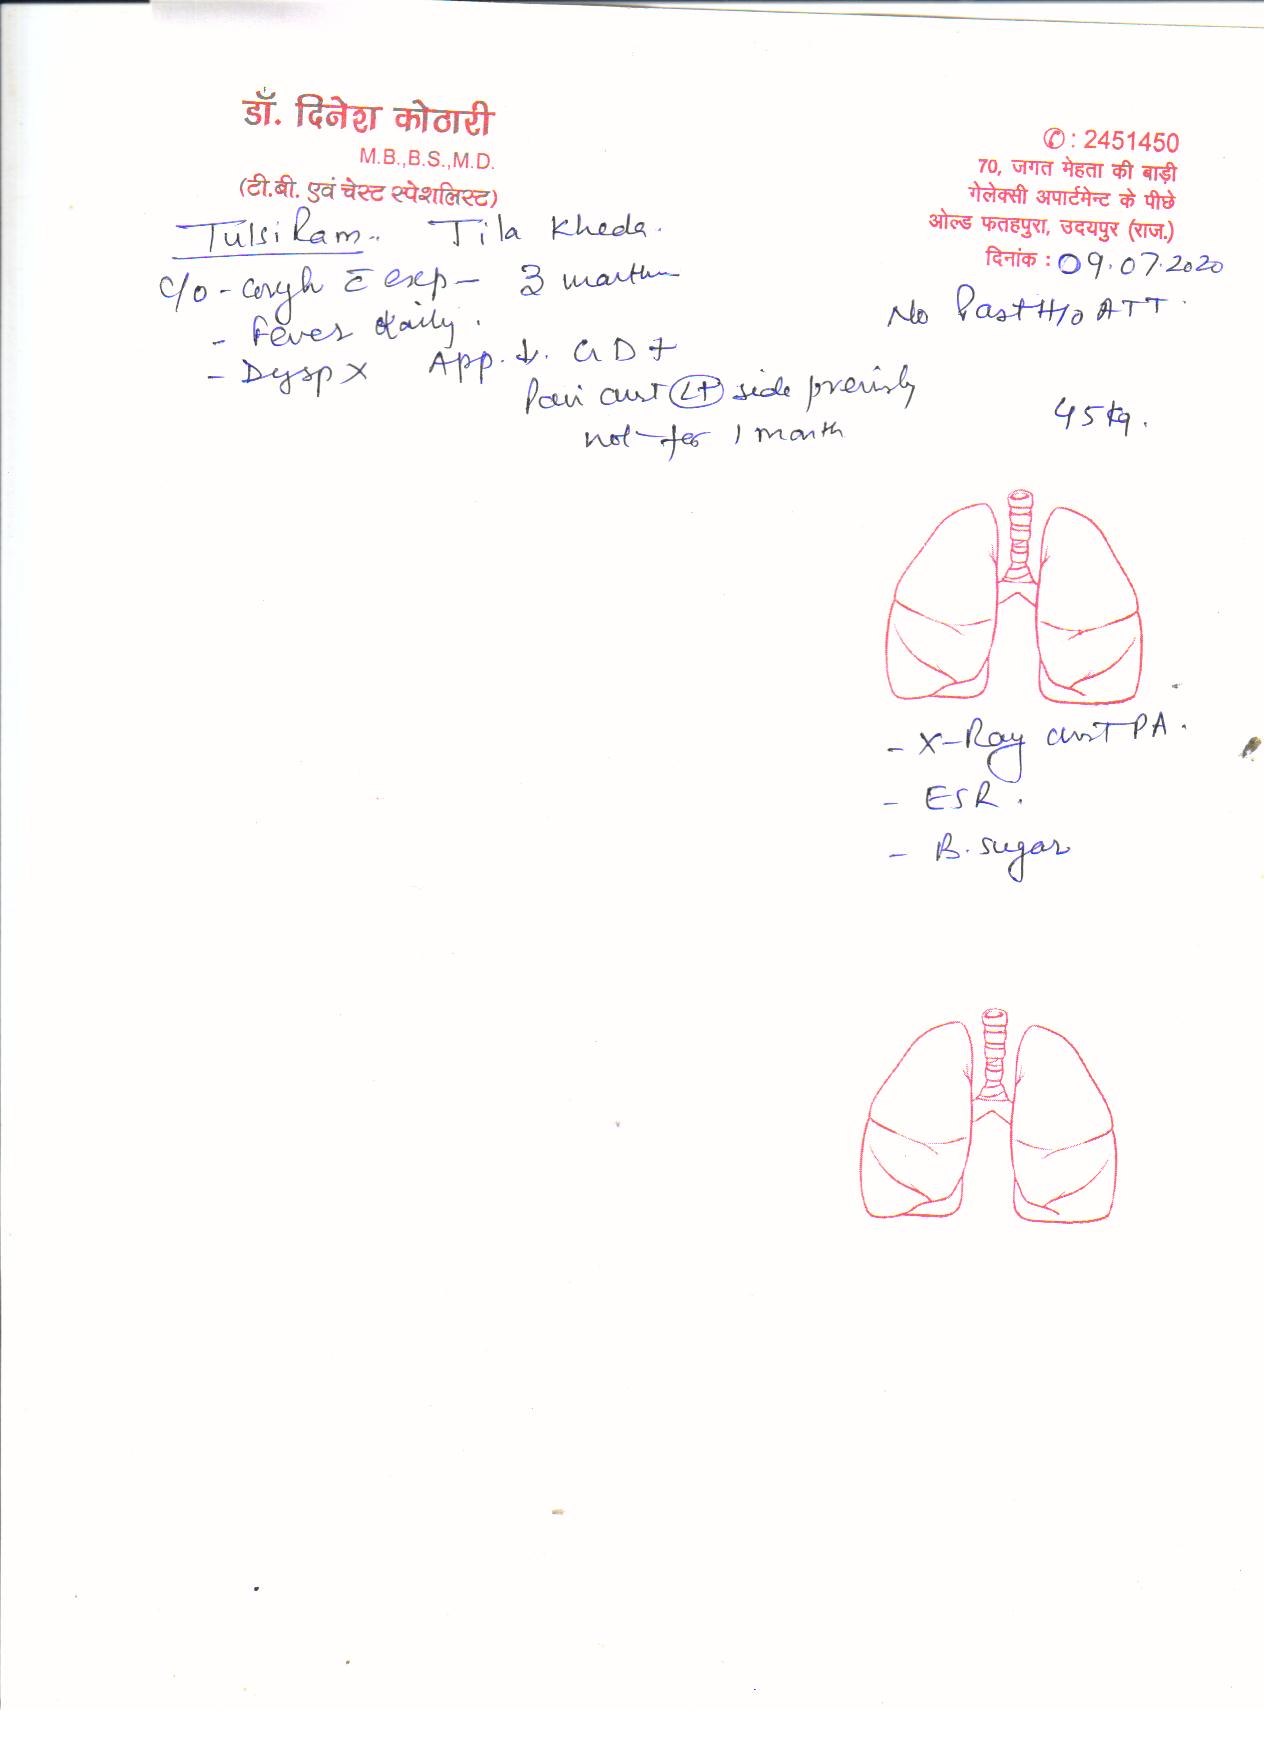 डॉ. दिनेश कोठारी
M.B.,B.S.,M.D.
(टी.बी. एवं चेस्ट स्पेशलिस्ट)
✆ : 2451450
70, जगत मेहता की बाड़ी
गेलेक्सी अपार्टमेन्ट के पीछे
ओल्ड फतहपुरा, उदयपुर (राज.)
दिनांक : 09.07.2020
TulsiRam. Tila Kheda.
C/o - cough c̄ exp - 3 months
- Fever daily.
- Dysp X App. ↓. GD +
Pain chest Lt side previously
not for 1 month
No Past H/o ATT.
45 kg.
- X-Ray chest PA.
- ESR.
- B. sugar